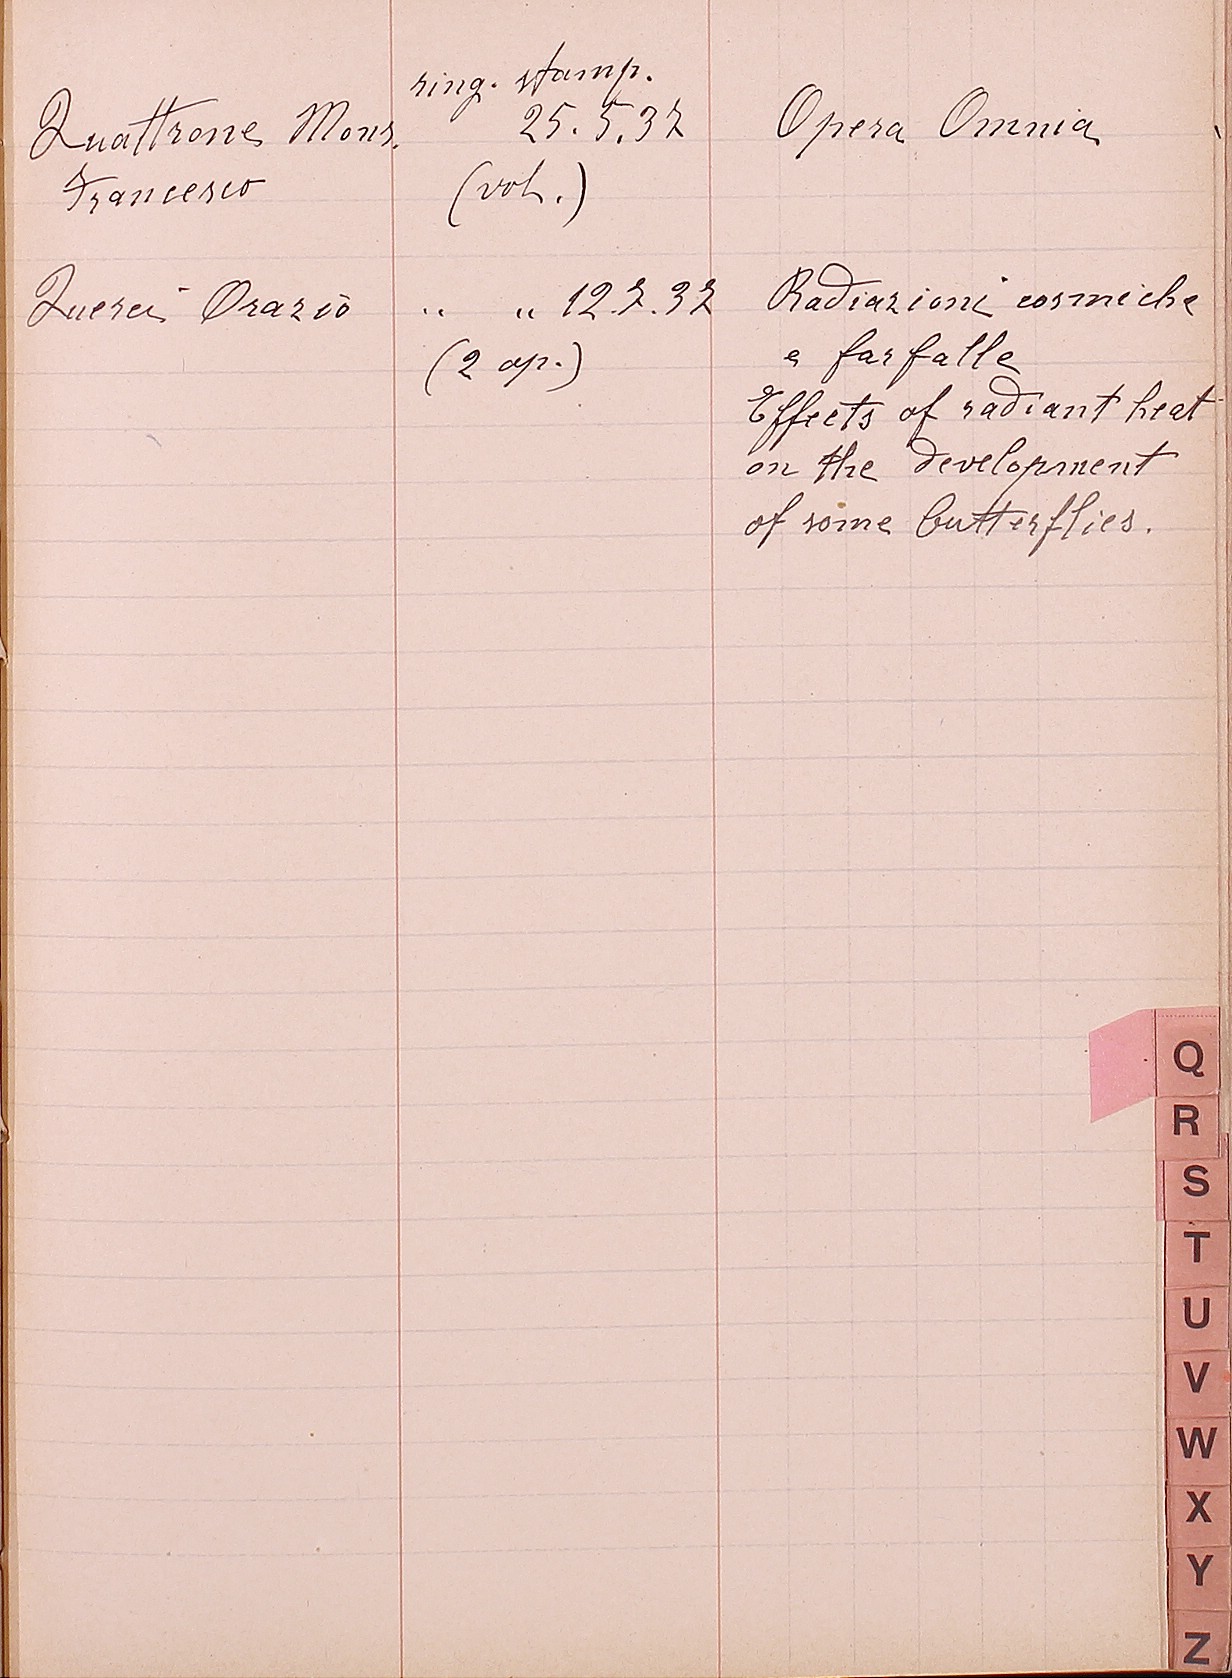 ring. stamp.
Quattrone Mons. 25.5.37 Opera Omnia
Francesco (vol.)
Querci Orazio " " 12.7.37 Radiazioni cosmiche
(2 op.) e farfalle
Effects of radiant heat
on the development
of some butterflies.
Q
R
S
T
U
V
W
X
Y
Z